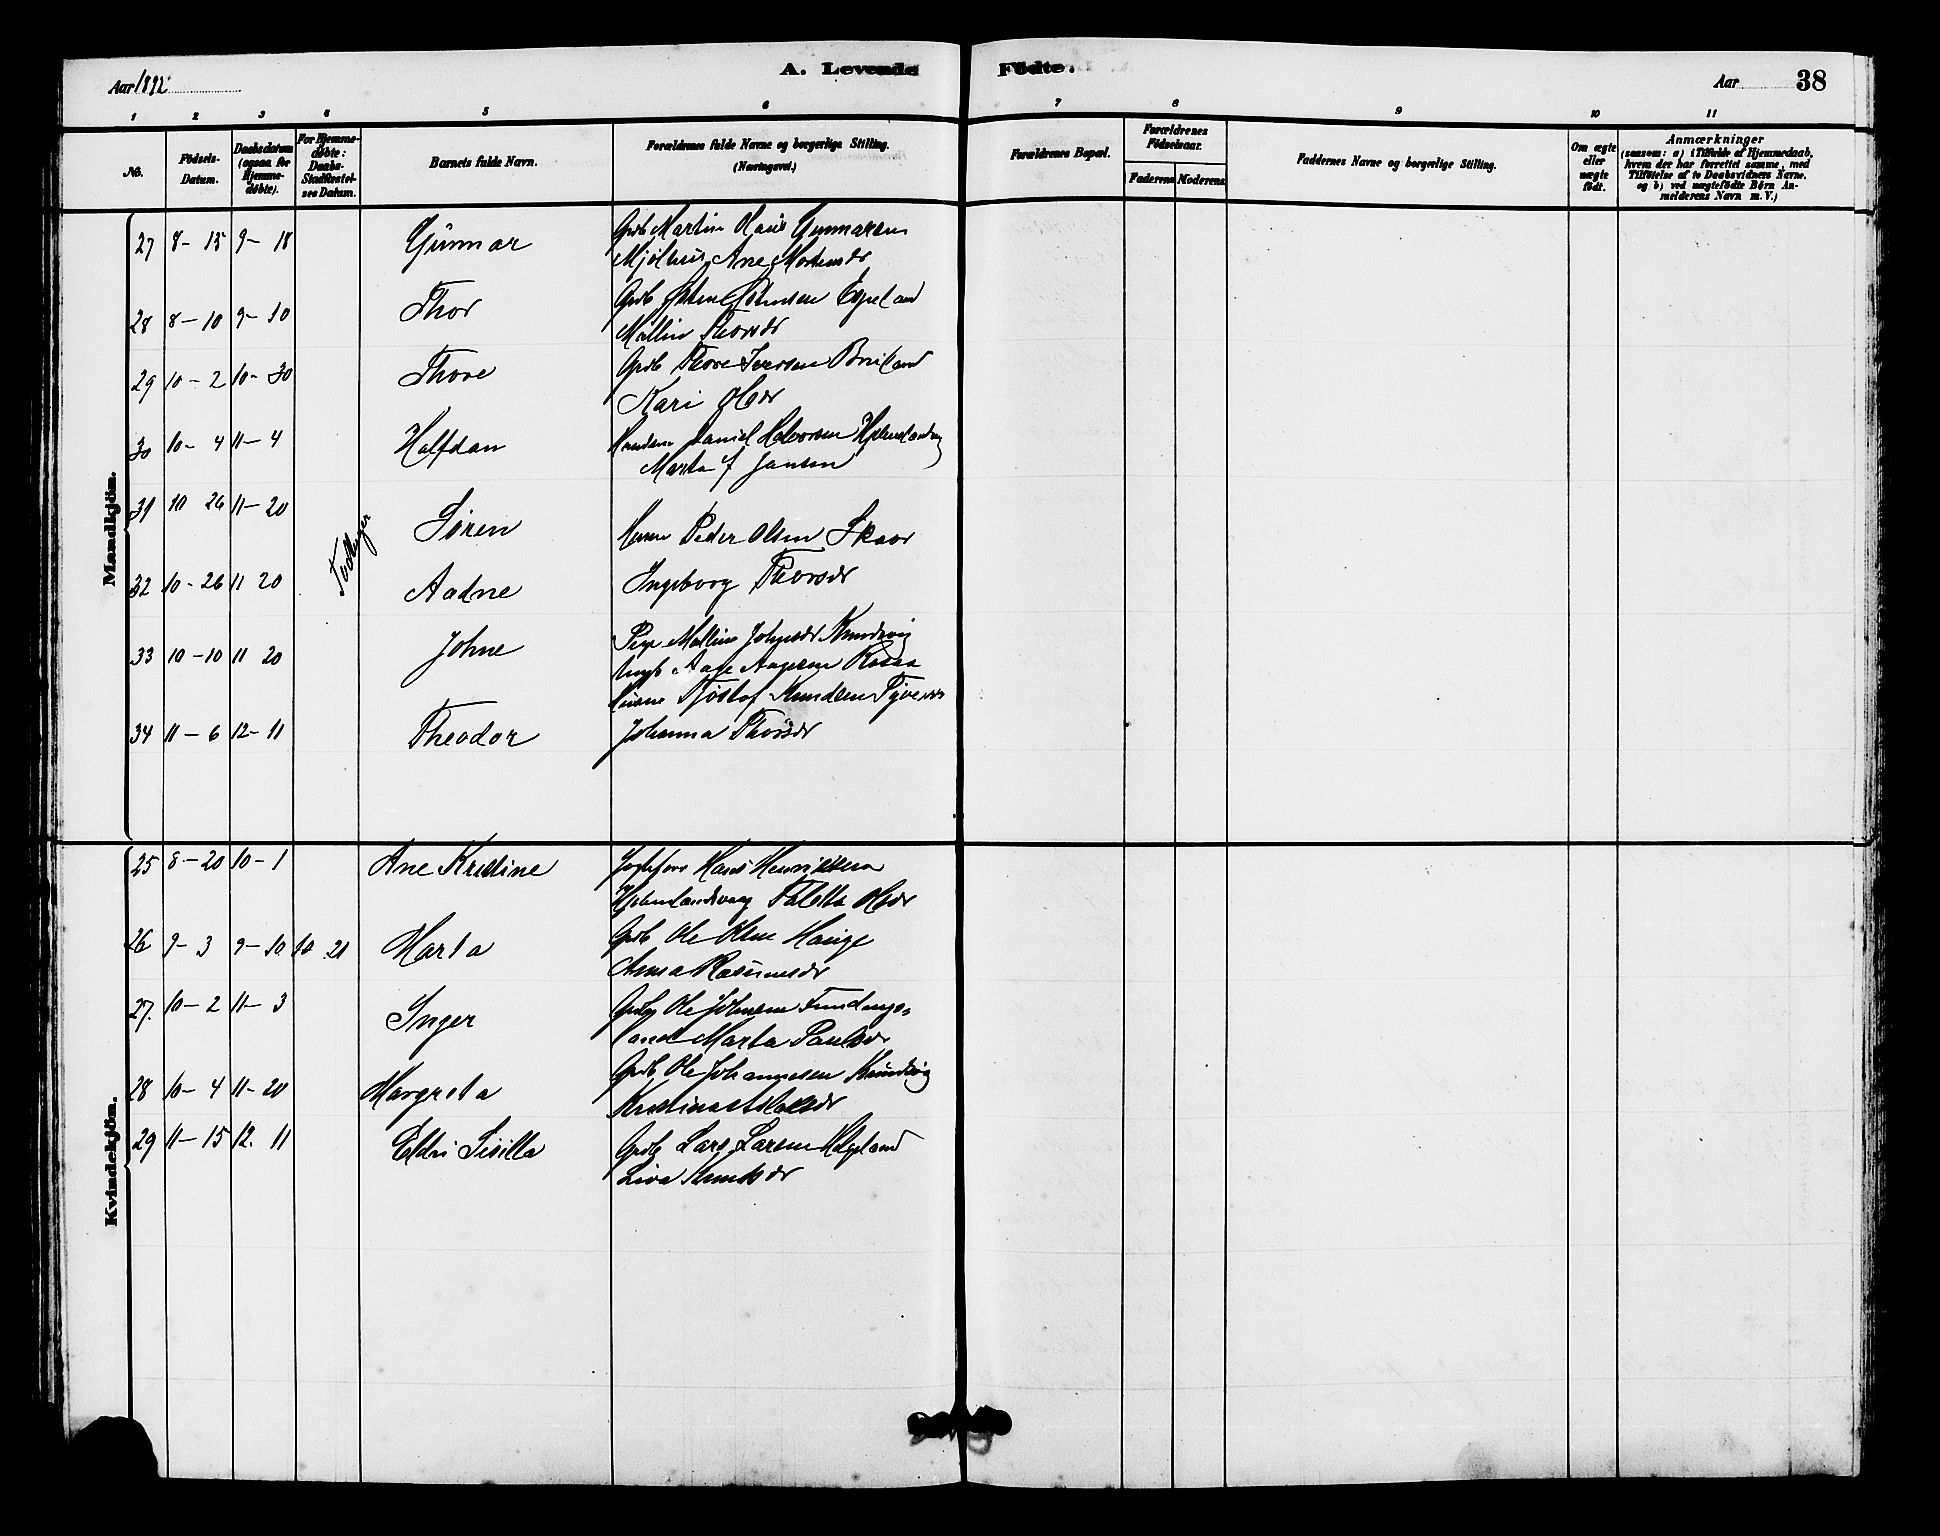 Aar 1892
A. Levende Födte.
Aar 38
1 2 3 4 5 6 7 8 9 10 11
No. Födsels-Datum. Daabsdatum (ogsaa for Hjemme-døbte). For Hjemme-døbte: Daabs-Stadfæstel-ses Datum. Barnets fulde Navn. Forældrenes fulde Navne og borgerlige Stilling. (Næringsvei.) Forældrenes Bopæl. Forældrenes Födselsaar. Faderens Moderens Faddernes Navne og borgerlige Stilling. Om ægte eller uægte födt. Anmærkninger (saasom: a) i Tilfælde af Hjemmedaab, hvem der har forrettet samme, med Tilföielse af to Daabsvidners Navne. og b) ved uægtefödte Börn An-melderens Navn m. V.)
Mandkjön.
27 8-15 9-18 Gunnar Grdb Martin Hans Gunnarsen
Mjølhus, Ane Mortensdr
28 8-10 9-10 Thor Grdb Espeland
Mallin Thorsdr
29 10-2 10-30 Thore Grdb Thore Iversen Breiland
Kari Olsdr
30 10-4 11-4 Halfdan Daniel Halvorsen
Marta J Jansen
31 10 26 11-20 Søren Peder Olsen Skaar
Tvillinger
32 10-26 11 20 Aadne Ingeborg Thorsdr
33 10-10 11 20 Johne Pige Malline
Aage Aagesen
Tjøstof Knudsen
34 11-6 12-11 Theodor Johanna Thorsdr
Kvindekjön.
25 8-20 10-1 Ane Kristine Hans Henriksen
Olsdr
26 9-3 9-10 10 21 Marta Grdb Ole Olsen Hauge
Anna Rasmusdr
27. 10-2 11-3 Inger Ole Johnsen Tundings-
land Marta Paulsdr
28 10-4 11-20 Margreta Grdb Ole Johannesen Kundvig
29 11-15 12. 11 Eldri Sisilla Grdb Lars Larsen Helgeland
Liva Knudsdr